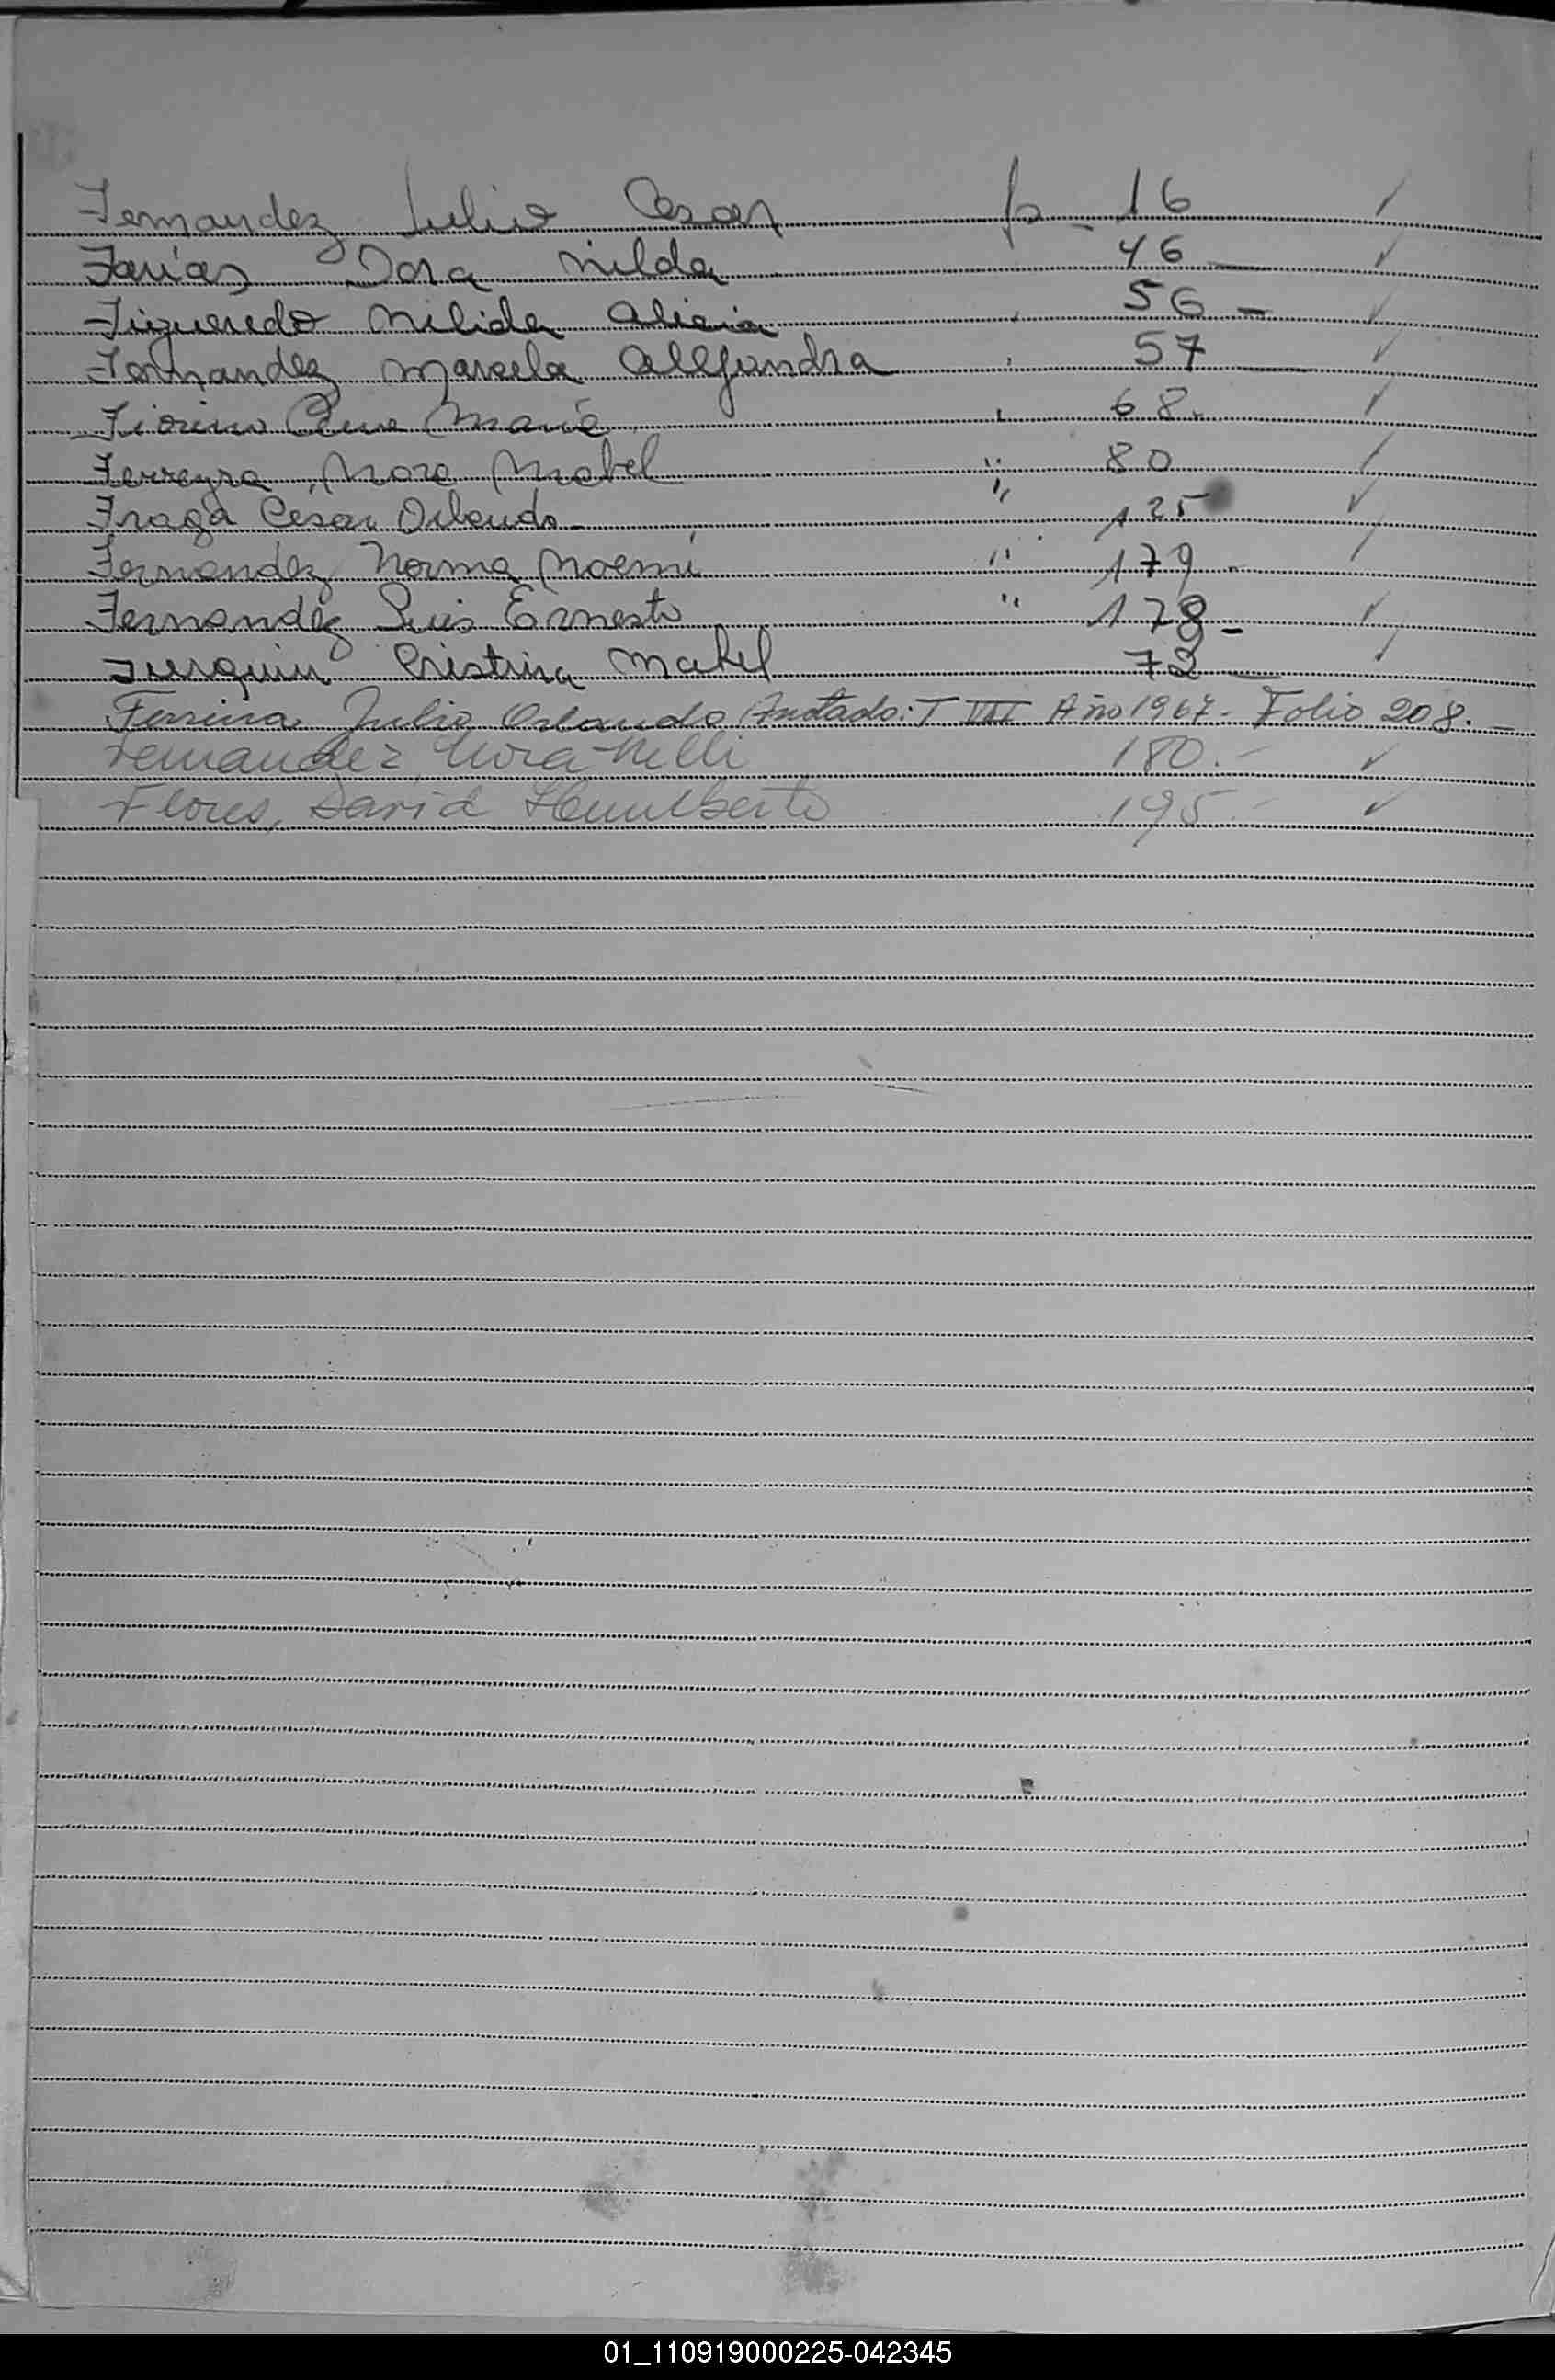 Fernandez Julio Cesar fs 16 ✓
Farias Dora Nilda 46 — ✓
Figueredo Nelida Alicia 56 — ✓
Fernandez Marcela Alejandra 57 — ✓
Fiorino María 68. ✓
Ferreyra, Nora Mabel " 80 ✓
Fraga César Orlando - " 125 ✓
Fernandez Norma Noemí " 179 - ✓
Fernandez Luis Ernesto " 178 - ✓
Cristina Mabel 72 — ✓
Ferreira Julio Orlando Anotado: T VIII Año 1967 - Folio 208. —
Fernandez, Nora Nelli 180. - ✓
Flores, David Humberto 195 - ✓
01_110919000225-042345